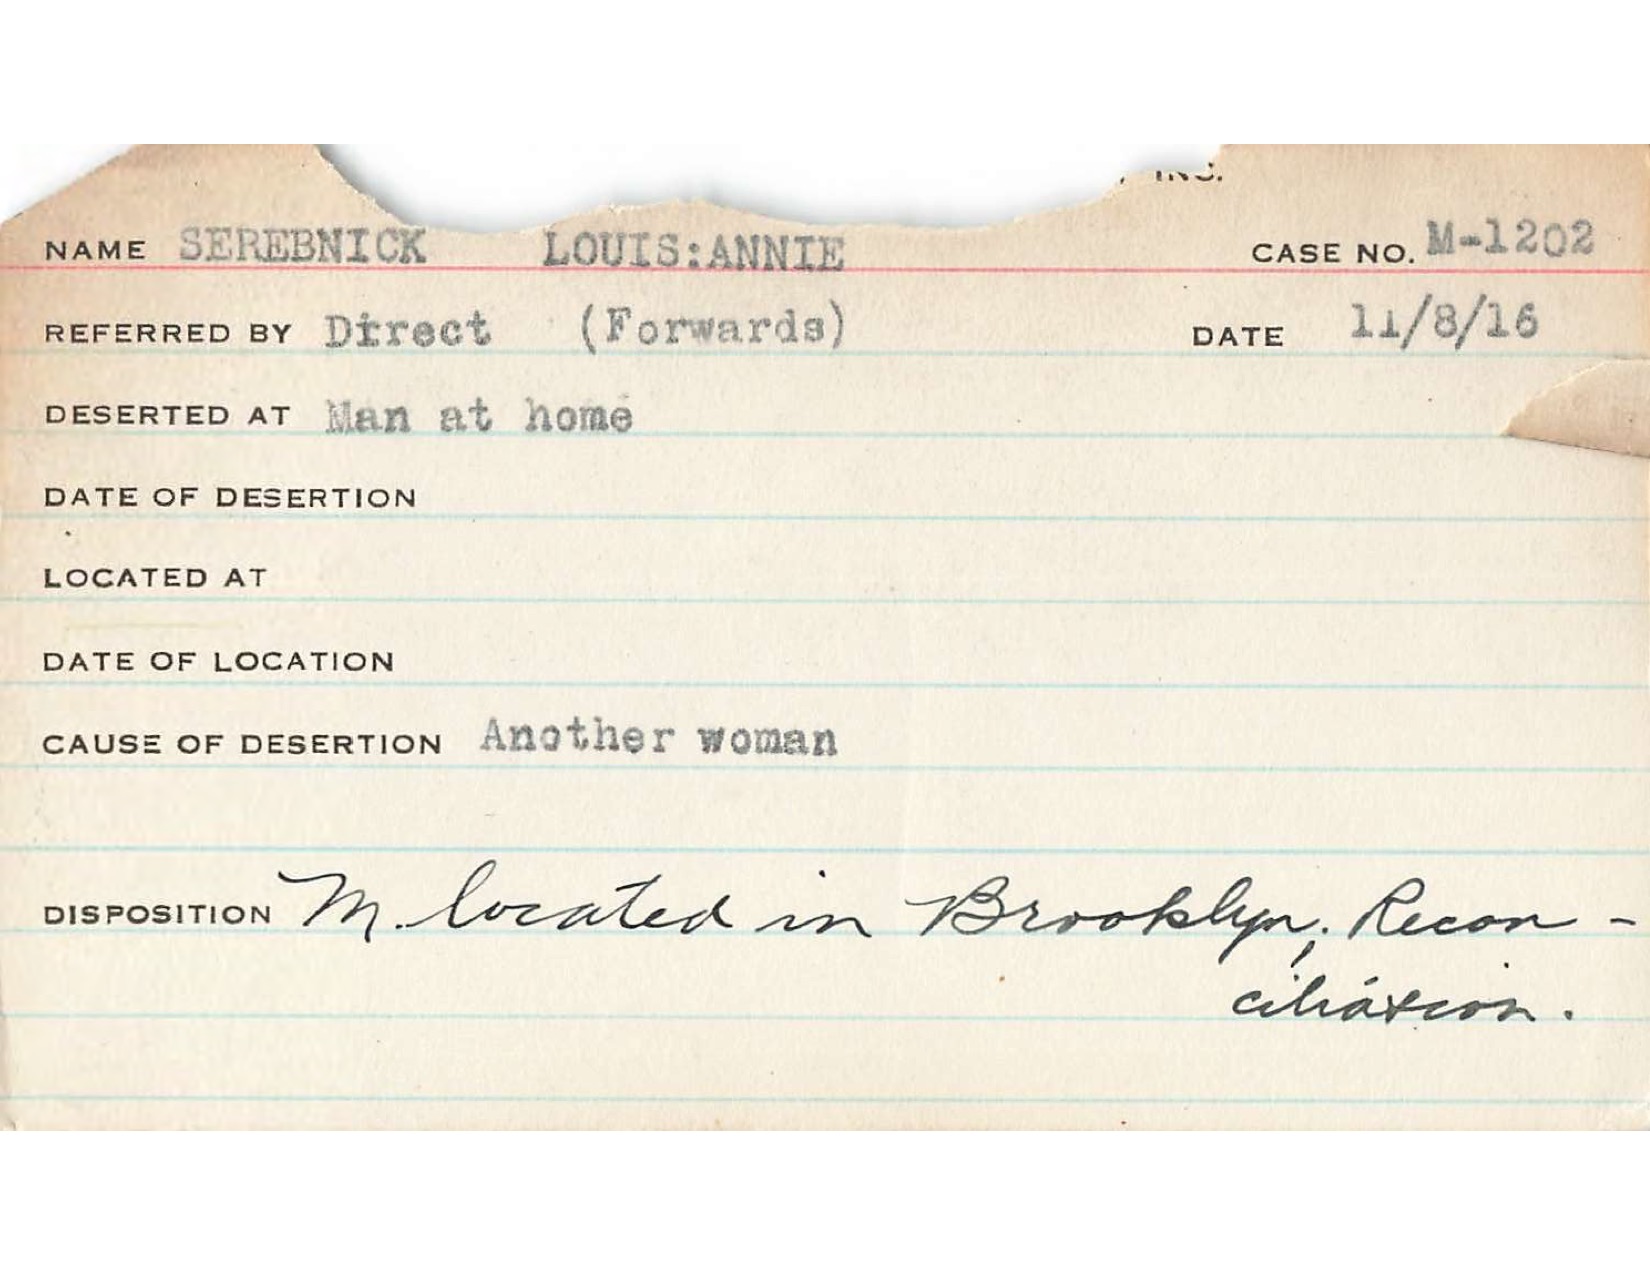 INC.
NAME SEREBNICK LOUIS:ANNIE CASE NO. M-1202
REFERRED BY Direct (Forwards) DATE 11/8/16
DESERTED AT Man at home
DATE OF DESERTION
LOCATED AT
DATE OF LOCATION
CAUSE OF DESERTION Another woman
DISPOSITION M. located in Brooklyn; Recon-
ciliation.